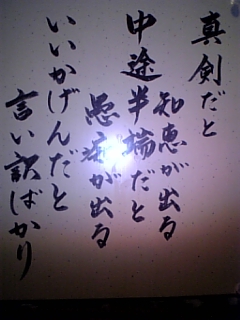 真剣だと
知恵が出る
中途半端だと
愚痴が出る
いいかげんだと
言い訳ばかり